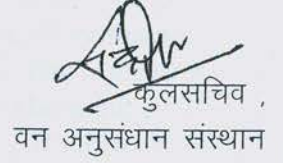 कुलसचिव,
वन अनुसंधान संस्थान